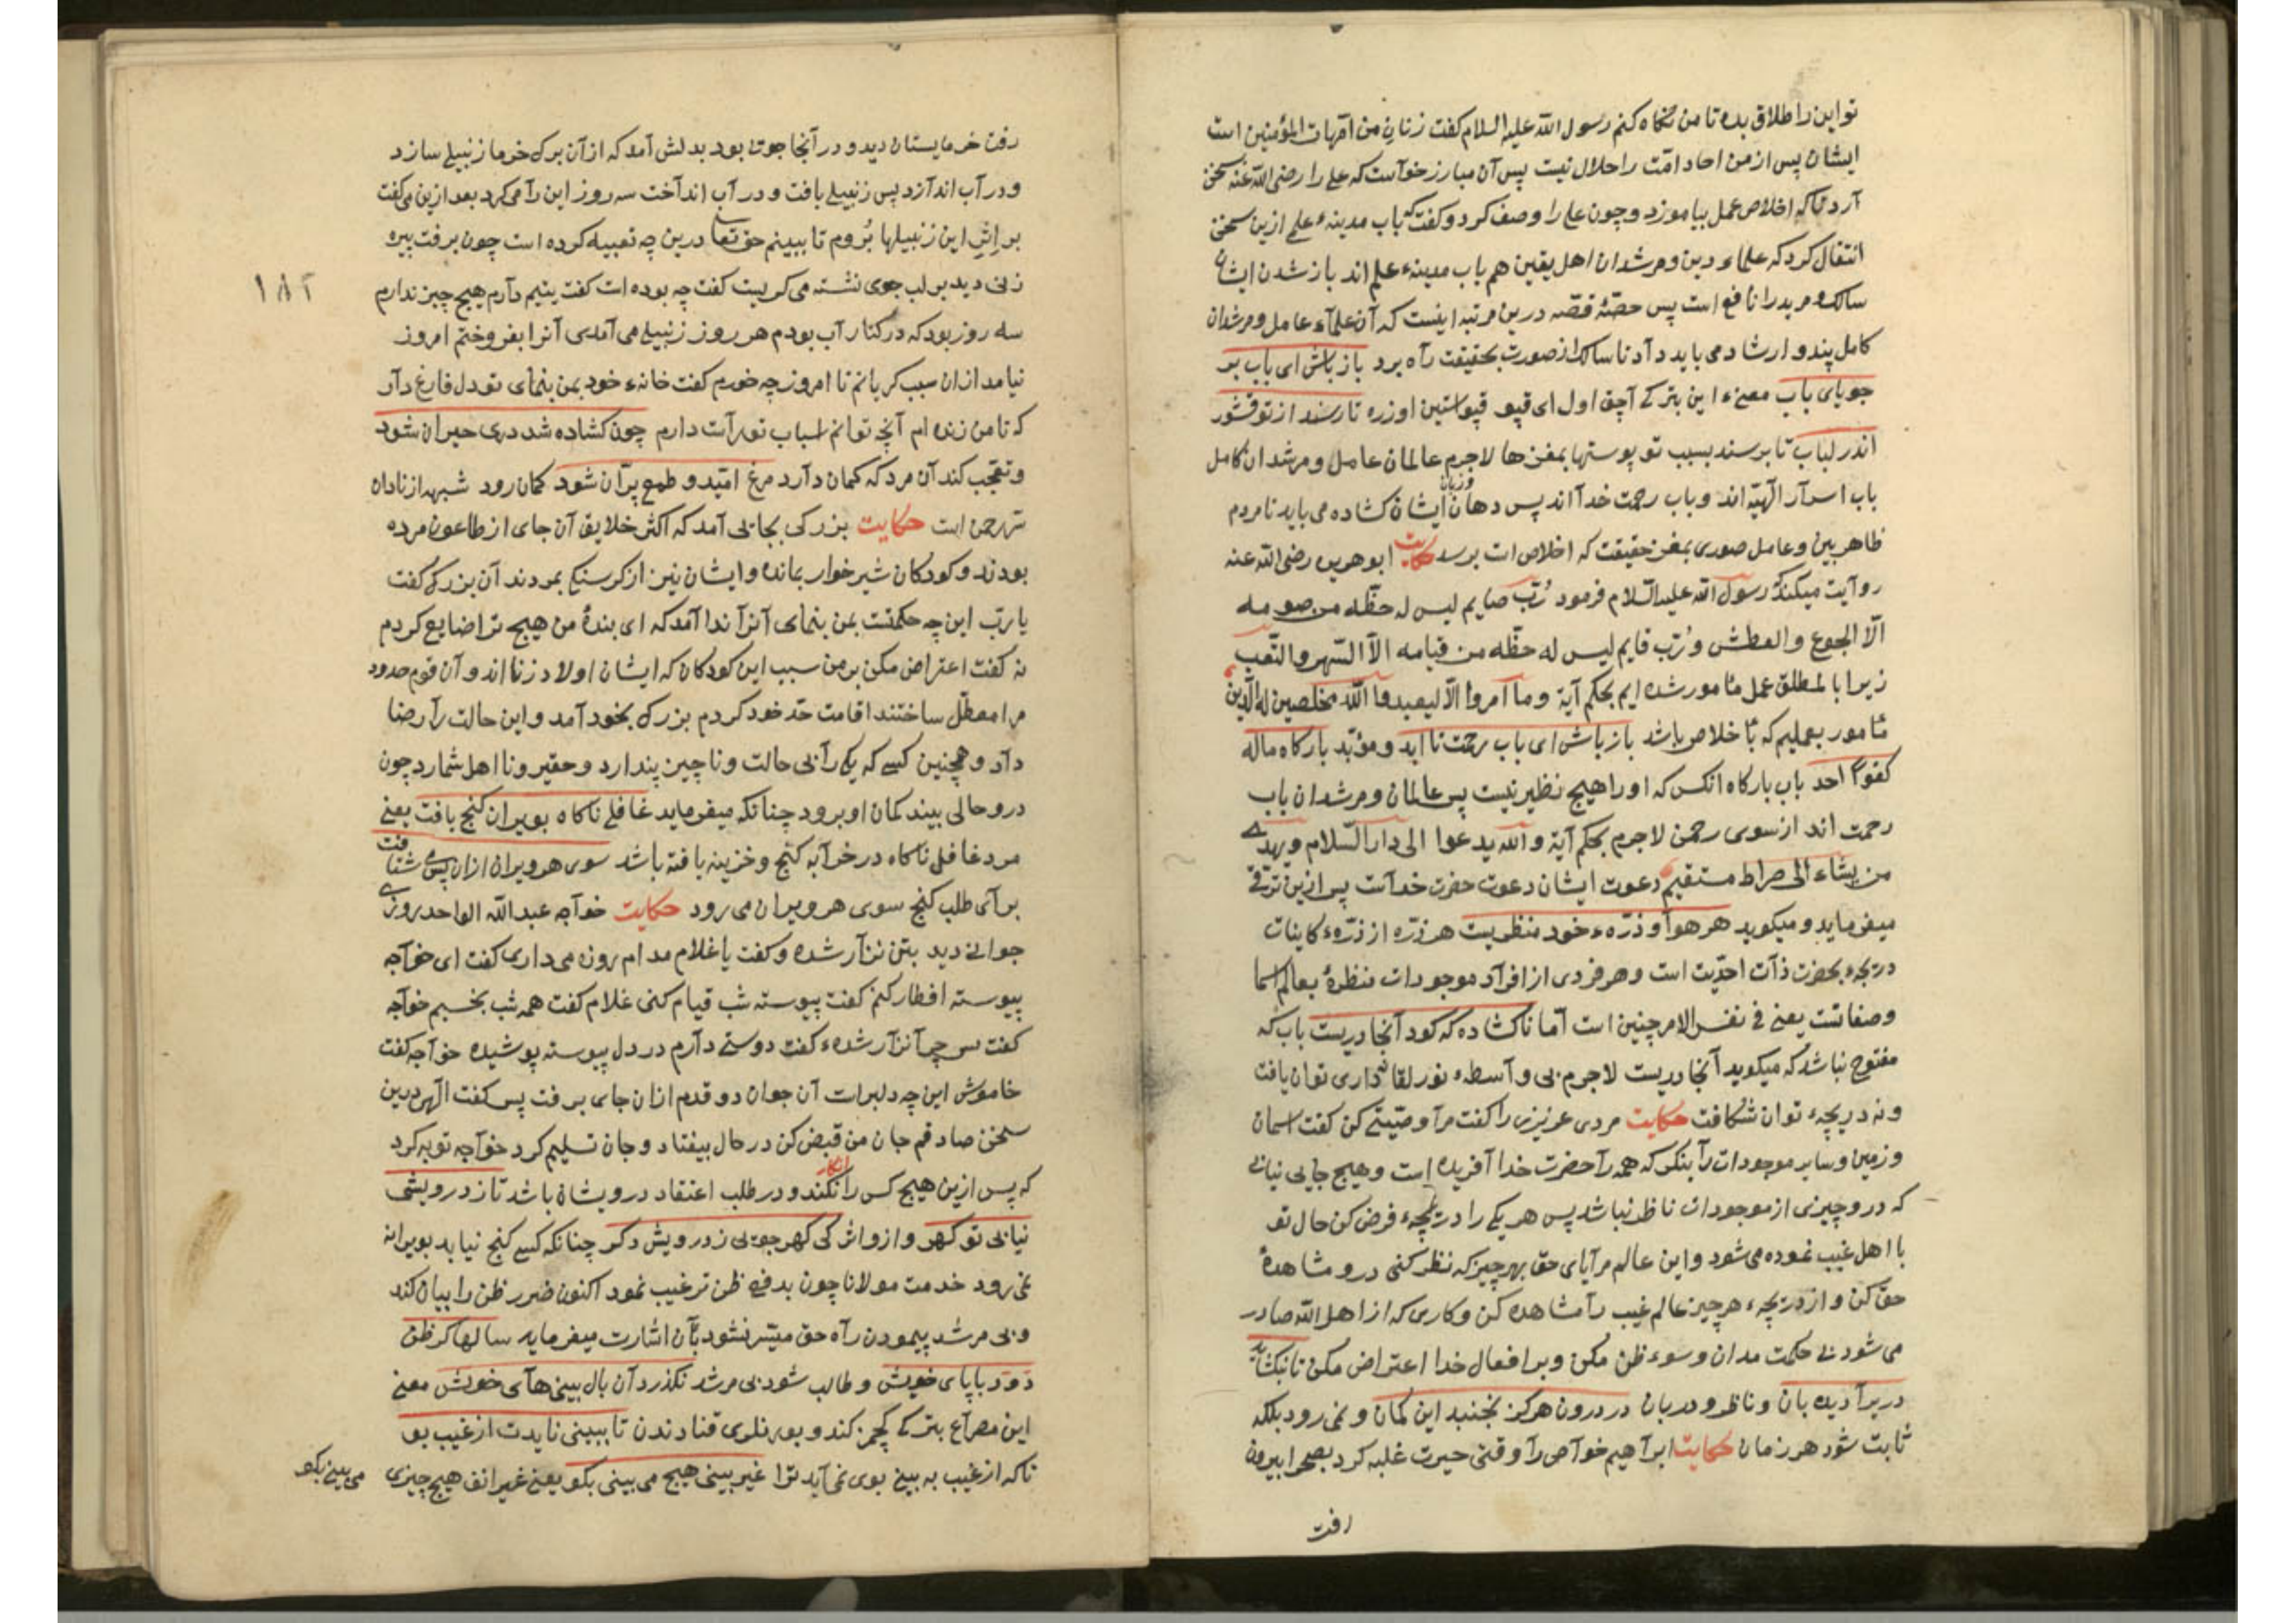 تو این را طلاق بده تا من نکاه کنم رسول الله علیه السلام کفت زنان من امّهات المؤمنین است
ایشان پس از من احاد امّت را حلال نیست پس آن مبارز خواست که علی را رضی الله عنه سخن
آرد تا که اخلاص عمل بیاموزد و چون علی را وصف کرد و کفت که باب مدینهٔ علم ازین سخن
انتقال کرد که علماء دین و مرشدان اهل یقین هم باب مدینهٔ علم اند باز شدن ایشان
سالک و مرید را نافع است پس حصّهٔ قصّه درین مرتبه اینست که آن علمآء عامل و مرشدان
کامل پند و ارشاد می باید داد تا سالک از صورت بحقیقت راه برد باز باش ای باب بر
جویای باب معنیء این بترکی آچق اول ای قپو قپو استین اوزره تا رسند از تو قشور
اندر لباب تا برسند بسبب تو پوستها بمغزها لاجرم عالمان عامل و مرشدان کامل
باب اسرار الهیّه اند و باب رحمت خدا اند پس دهان و زبان ایشان کشاده می باید تا مردم
ظاهربین و عامل صوری بمغز حقیقت که اخلاص است برسد حکایت ابو هریره رضی الله عنه
روایت میکند که رسول الله علیه السلام فرمود رُبّ صایم لیس له حظّه من صومه
الّا الجوع والعطش و رُبّ قایم لیس له حظّه من قیامه الّا السّهر والتّعب
زیرا با لمطلق عمل مأمور شده ایم بحکم آیة وما امروا الّا لیعبدوا الله مخلصین له الدّین
مأمور بعملیم که با خلاص باشد باز باش ای باب رحمت تا ابد و مؤبّد بارکاه ماله
کفوًا احد باب بارکاه انکس که او را هیچ نظیر نیست پس عالمان و مرشدان باب
رحمت اند از سوی رحمن لاجرم بحکم آیة والله یدعوا الی دار السّلام ویهدی
من یشاء الی صراط مستقیم دعوت ایشان دعوت حضرت خداست پس ازین ترقّی
میفرماید و میکوید هر هوا و ذرّهء خود منظریست هر ذرّه از ذرّهء کاینات
دریچهء بحضرت ذات احدیّت است و هر فردی از افراد موجودات منظرهٔ بعالم اسما
و صفاتست یعنی فی نفس الامر چنین است امّا ناکشاده که کود آنجا دریست باب که
مفتوح نباشد که میکوید آنجا دریست لاجرم بی واسطهء نور لقا نداری توان یافت
و نه دریچهء توان شکافت حکایت مردی عزیزی را کفت مرا وصیّتی کن کفت اسمان
و زمین و سایر موجودات را بنکر که همه را حضرت خدا آفریده است و هیچ جایی نیابی
که درو چیزی از موجودات ناظر نباشد پس هر یکی را دریچهء فرض کن حال تو
با اهل غیب نموده می شود و این عالم مرآیای حق بهر چیز که نظر کنی درو مشاهدهٔ
حق کن و از دریچهء هر چیز عالم غیب را مشاهده کن و کاری که از اهل الله صادر
می شود بی حکمت مدان و سوء ظن مکن و بر افعال خدا اعتراض مکن تا نکشاید
دریرا دیده بان و ناظر و دربان در درون هرکز نجنبد این کمان و نمی رود بلکه
ثابت شود هر زمان حکایت ابراهیم خواص را وقتی حیرت غلبه کرد بصحرا بیرون
رفت
رفت خرمایستان دید و در آنجا جوی بود بدلش آمد که از آن برک خرما زنبیلی سازد
و در آب اندازد پس زنبیلی بافت و در آب انداخت سه روز این را می کرد بعد ازین می کفت
بر اثر این زنبیلها بُروم تا ببینم حق تعا درین چه تعبیه کرده است چون برفت بیره
زنی دید بر لب جوی نشسته می کریست کفت چه بوده است کفت یتیم دارم هیچ چیز ندارم
سه روز بود که در کنار آب بودم هر روز زنبیلی می آمدی آنرا بفروختم امروز
نیامد ازان سبب کریانم تا امروز چه خورم کفت خانهء خود بمن بنمای تو دل فارغ دار
که تا من زنده ام آنچه توانم اسباب تو راست دارم چون کشاده شد دری حیران شود
و تعجّب کند آن مرد که کمان دارد مرغ امّید و طمع پرّان شود کمان رود شبهه از نادان
حکایت بزرکی بجایی آمد که اکثر خلایق آن جای از طاعون مرده
بودند و کودکان شیرخوار بمانده و ایشان نیز از کرسنکی بمردند آن بزرک کفت
یا ربّ این چه حکمتست بمن بنمای آنرا ندا آمد که ای بندهٔ من هیچ ترا ضایع کردم
نه کفت اعتراض مکن بر من سبب این کودکان که ایشان اولاد زنا اند و آن قوم حدود
مرا معطّل ساختند اقامت حدّ خود کردم بزرک بخود آمد و این حالت را رضا
داد و همچنین کسی که یکی را بی حالت و ناچیز پندارد و حقیر و نااهل شمارد چون
درو حالی بیند کمان او برود چنانکه میفرماید غافلی ناکاه بویران کنج یافت یعنی
مرد غافل ناکاه در خرابه کنج و خزینه یافته باشد سوی هر ویران ازان پس می شتافت
برای طلب کنج سوی هر ویران می رود حکایت خواجه عبد الله الواحد روزی
جوانی دید بتن نزار شده و کفت یا غلام مدام روزه می داری کفت ای خواجه
پیوسته افطار کنم کفت پیوسته شب قیام کنی غلام کفت همه شب بخسبم خواجه
کفت پس چرا نزار شدهء کفت دوستی دارم در دل پیوسته پوشیده خواجه کفت
خاموش این چه دلیرات آن جوان دو قدم ازان جای برفت پس کفت الهی درین
سخن صادقم جان من قبض کن در حال بیفتاد و جان تسلیم کرد خواجه توبه کرد
که پس ازین هیچ کس را انکار نکند و در طلب اعتقاد درویشان باشد تا ز درویشی
نیابی تو کهر و ازوائر کی کهر جویی ز درویش دکر چنانکه کسی کنج نیابد بویرانه
نمی رود خدمت مولانا چون بدفع ظن ترغیب نمود اکنون ضرر ظن را بیان کند
و بی مرشد پیمودن راه حق میسّر نشود بآن اشارت میفرماید سالها کر ظن
دَوَد با پای خویش و طالب شود بی مرشد نکذرد آن بال بینی های خویش معنی
این مصراع بترکی کچمز کند و بورنلری قنادندن تا ببینی نایدت از غیب بو
تا که از غیب به بینی بوی نمی آید ترا غیر بینی هیچ می بینی بکو یعنی غیر انف هیچ چیزی
می بینی بکو
۱۸۲